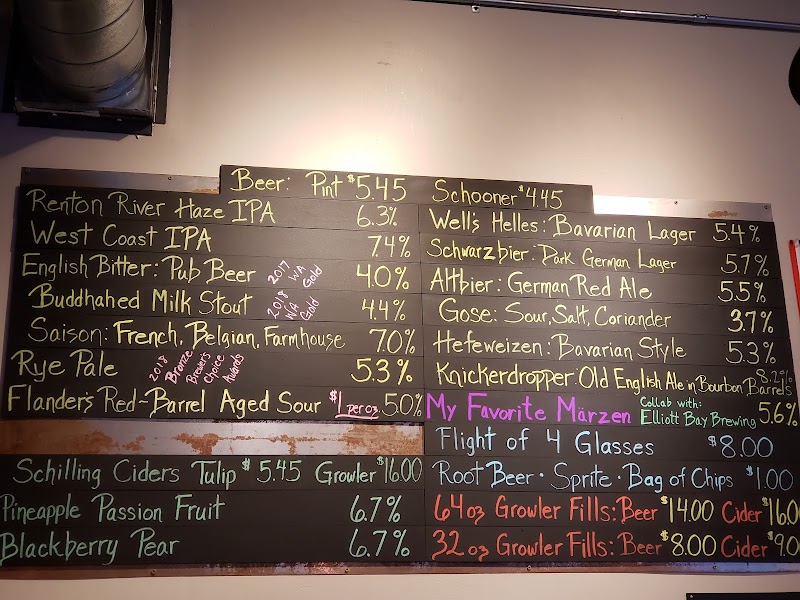 Beer: Pint $5.45 Schooner $4.45
Renton River Haze IPA 6.3%
West Coast IPA 7.4%
English Bitter: Pub Beer 2017 WA Gold 4.0%
Buddhahed Milk Stout 2018 WA Gold 4.4%
Saison: French, Belgian, Farmhouse 7.0%
Rye Pale 2018 Bronze Brewers Choice Awards 5.3%
Flander's Red-Barrel Aged Sour $1 per oz 5.0%
Schilling Ciders Tulip $5.45 Growler $16.00
Pineapple Passion Fruit 6.7%
Blackberry Pear 6.7%
Well's Helles: Bavarian Lager 5.4%
Schwarzbier: Dark German Lager 5.7%
Altbier: German Red Ale 5.5%
Gose: Sour, Salt, Coriander 3.7%
Hefeweizen: Bavarian Style 5.3%
Knickerdropper: Old English Ale in Bourbon Barrels 8.2%
My Favorite Märzen Collab with: Elliott Bay Brewing 5.6%
Flight of 4 Glasses $8.00
Root Beer · Sprite · Bag of Chips $1.00
64oz Growler Fills: Beer $14.00 Cider $16.00
32oz Growler Fills: Beer $8.00 Cider $9.00